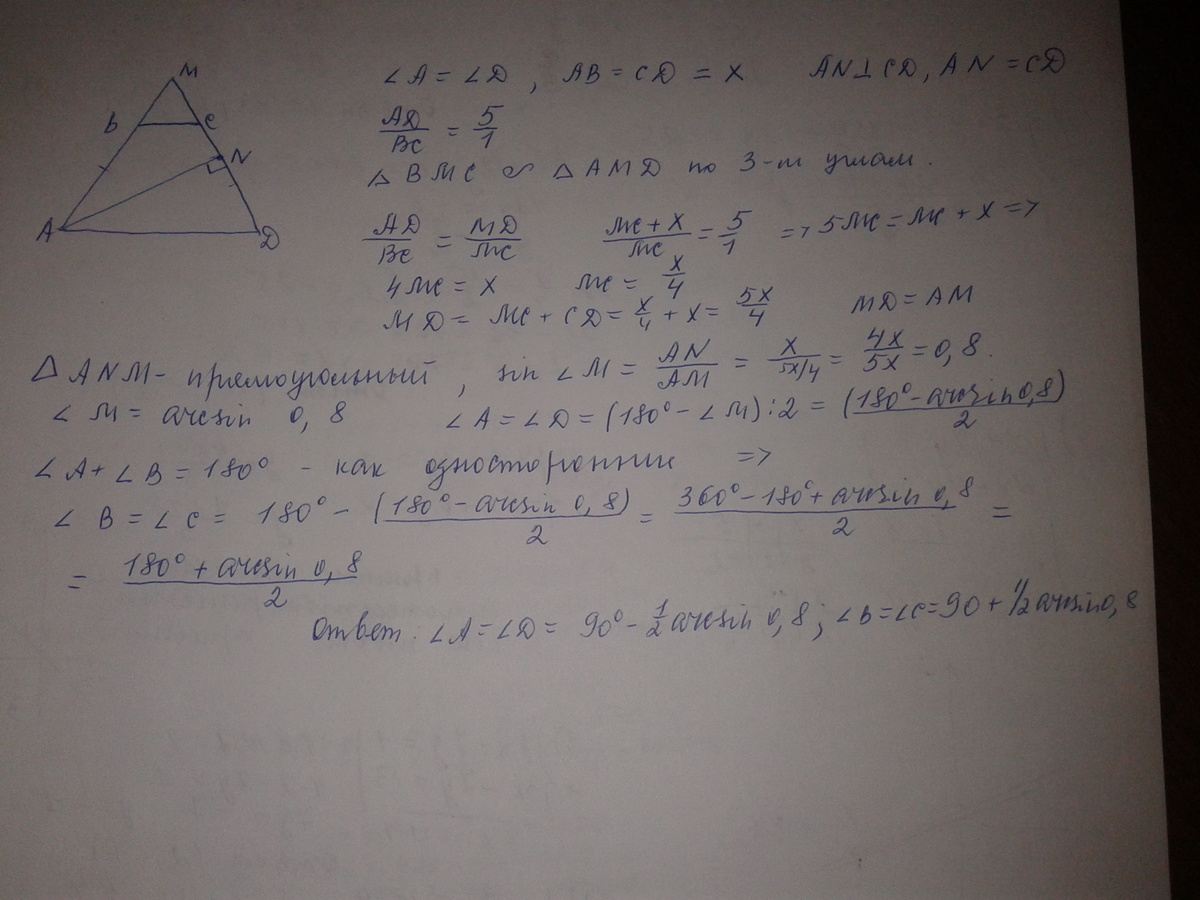 M
B C
N
A D
∠A = ∠D , AB = CD = x AN⊥CD, AN = CD
AD/BC = 5/1
△ BMC ∾ △ AMD по 3-м углам.
AD/BC = MD/MC (MC + x)/MC = 5/1 => 5MC = MC + x =>
4MC = x MC = x/4
MD = MC + CD = x/4 + x = 5x/4 MD = AM
△ ANM - прямоугольный , sin ∠M = AN/AM = x/(5x/4) = 4x/5x = 0,8.
∠ M = arcsin 0,8 ∠A = ∠D = (180° - ∠M) : 2 = (180° - arcsin 0,8)/2
∠ A + ∠ B = 180° - как односторонние =>
∠ B = ∠ C = 180° - (180° - arcsin 0,8)/2 = (360° - 180° + arcsin 0,8)/2 =
= (180° + arcsin 0,8)/2
Ответ: ∠A = ∠D = 90° - 1/2 arcsin 0,8 ; ∠B = ∠C = 90 + 1/2 arcsin 0,8